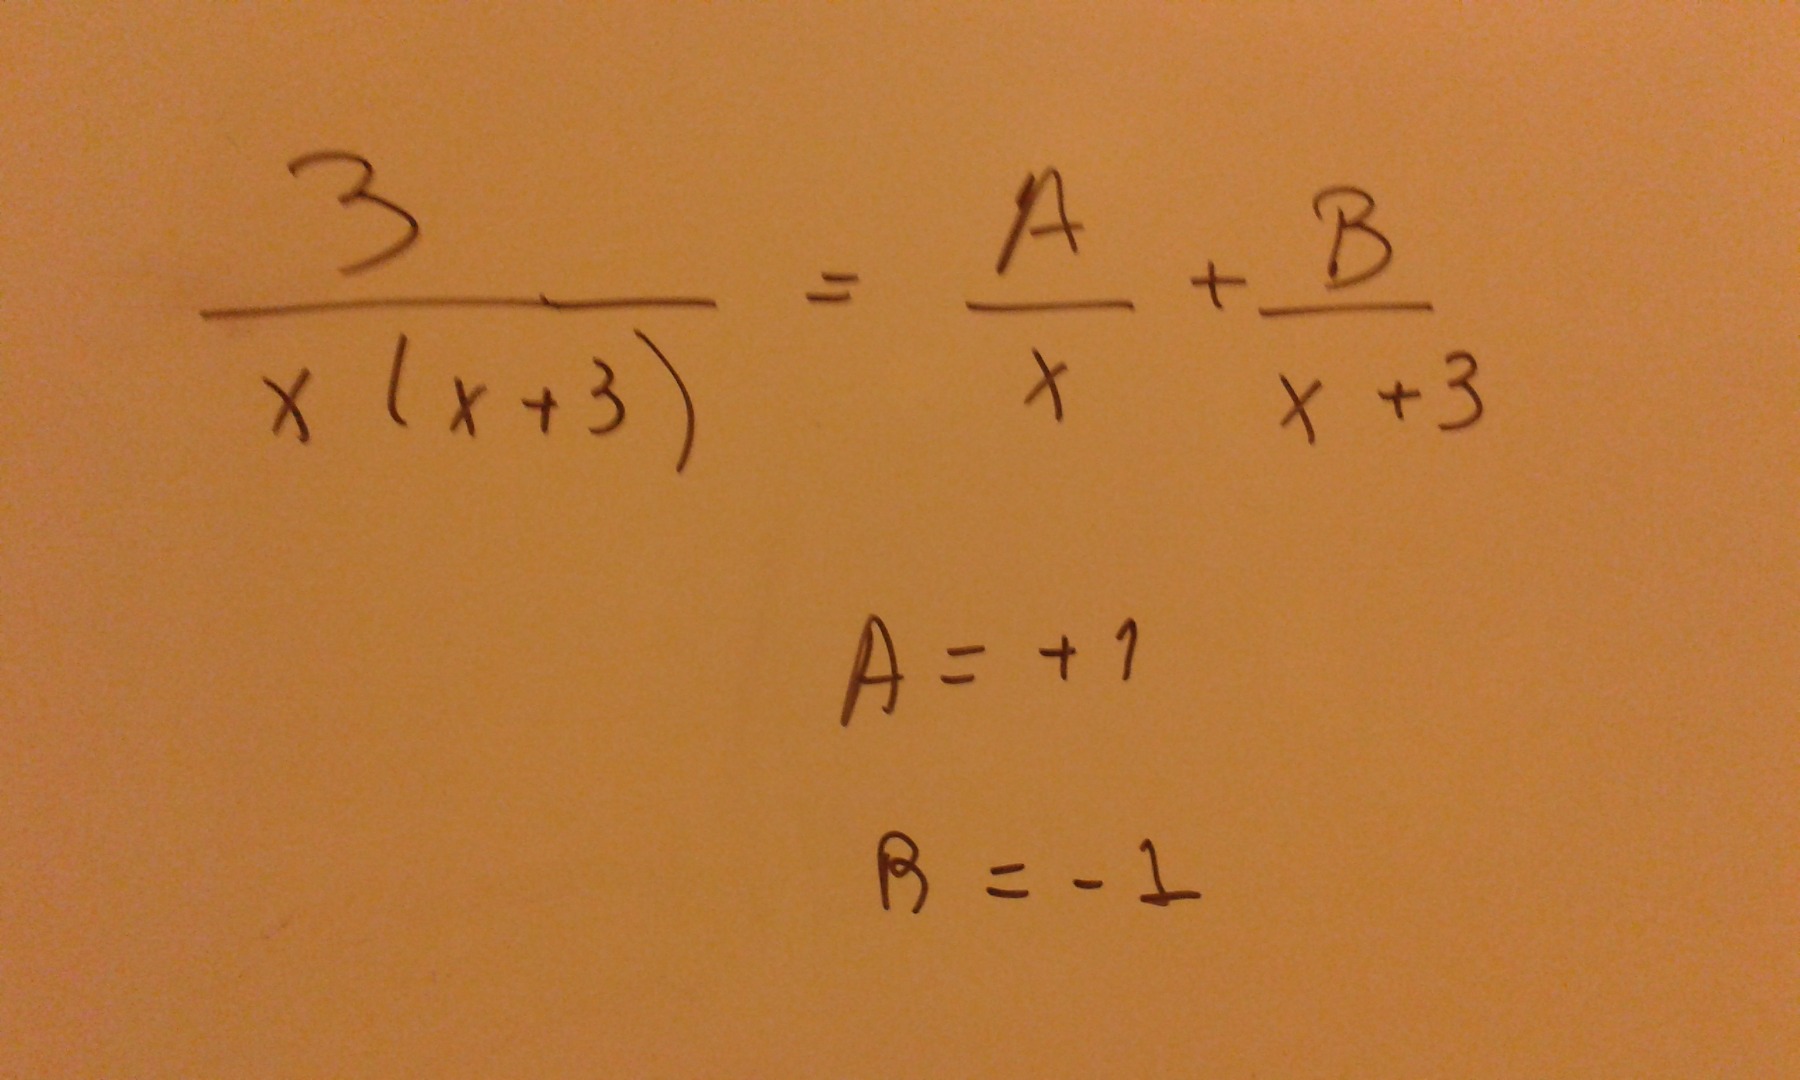 3/(x(x+3)) = A/x + B/(x+3)
A = +1
B = -1